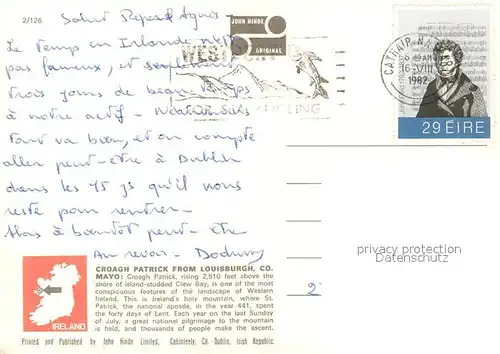 2/126
Salut Pepe et Agnès
JOHN HINDE
ORIGINAL
Le temps en Irlande n'est
pas fameux, et seulement
trois jours de beau temps
à notre actif -
tout va bien, et on compte
aller peut-être à Dublin
dans les 15 js qu'il nous
reste pour rentrer -
Alors à bientôt peut-être
Au revoir -
WEST
ANGLING
CATHAIR NA
VIII
1982
29 ÉIRE
privacy protection
watermark
2
CROAGH PATRICK FROM LOUISBURGH, CO.
MAYO: Croagh Patrick, rising 2,510 feet above the
shore of island-studded Clew Bay, is one of the most
conspicuous features of the landscape of Western
Ireland. This is Ireland's holy mountain, where St.
Patrick, the national apostle, in the year 441, spent
the forty days of Lent. Each year on the last Sunday
of July, a great national pilgrimage to the mountain
is held, and thousands of people make the ascent.
IRELAND
Printed and Published by John Hinde Limited, Cabinteely, Co. Dublin, Irish Republic.